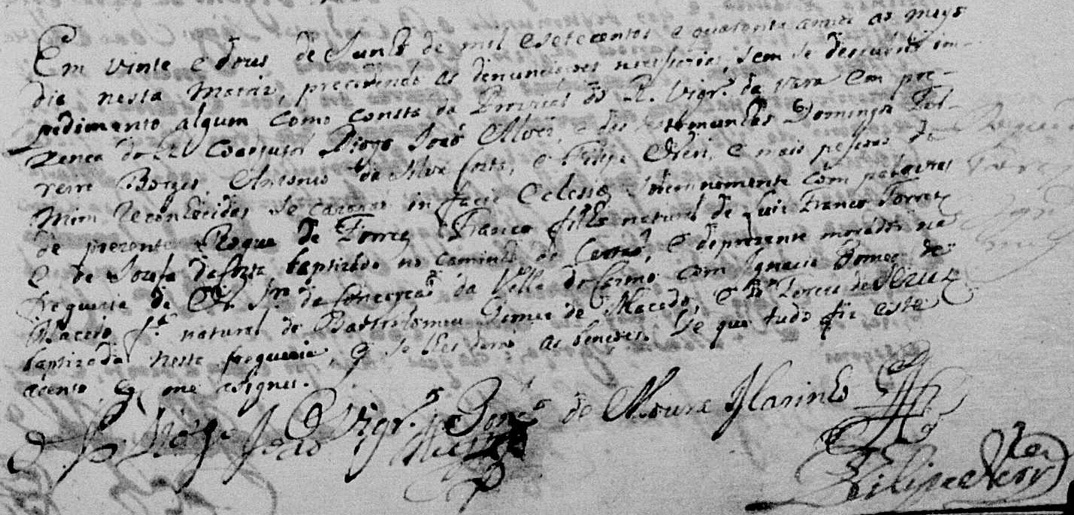 Em vinte e dous de Junho de mil e setecentos e quarenta annos ao meyo
dia nesta Matriz, precedendo as denunciaçoes necessarias, sem se descubrir im-
pedimento algum como consta da Provizaõ do R. Vigrº da vara em pre-
zença do R. Coadjutor Diogo Joaõ Alves, e das testemunhas Domingos
reira Borges, Antonio da Silva, e Filipe Neri, e mais pessoas de
mim reconhecidas se cazaraõ in facie Eclesiæ solennemente com palavras
de prezente Roque de Torres Franco filho natural de Luis Franco Torres
e de Jozefa da Costa, baptizado no caminho do Certaõ, e deprezente morador na
freguezia de N. Snrª da Conceyçaõ da Villa do Carmo com Ignacia Gomes de
Macedo fª natural de Bartholomeu Gomes de Macedo, e de Tereza de
baptizada nesta freguezia, q se lhes deraõ as bençoes. De que tudo fiz este
acento, q me asignei.
O Vigrº de Moura Marinho
Joaõ
Filipe Nery